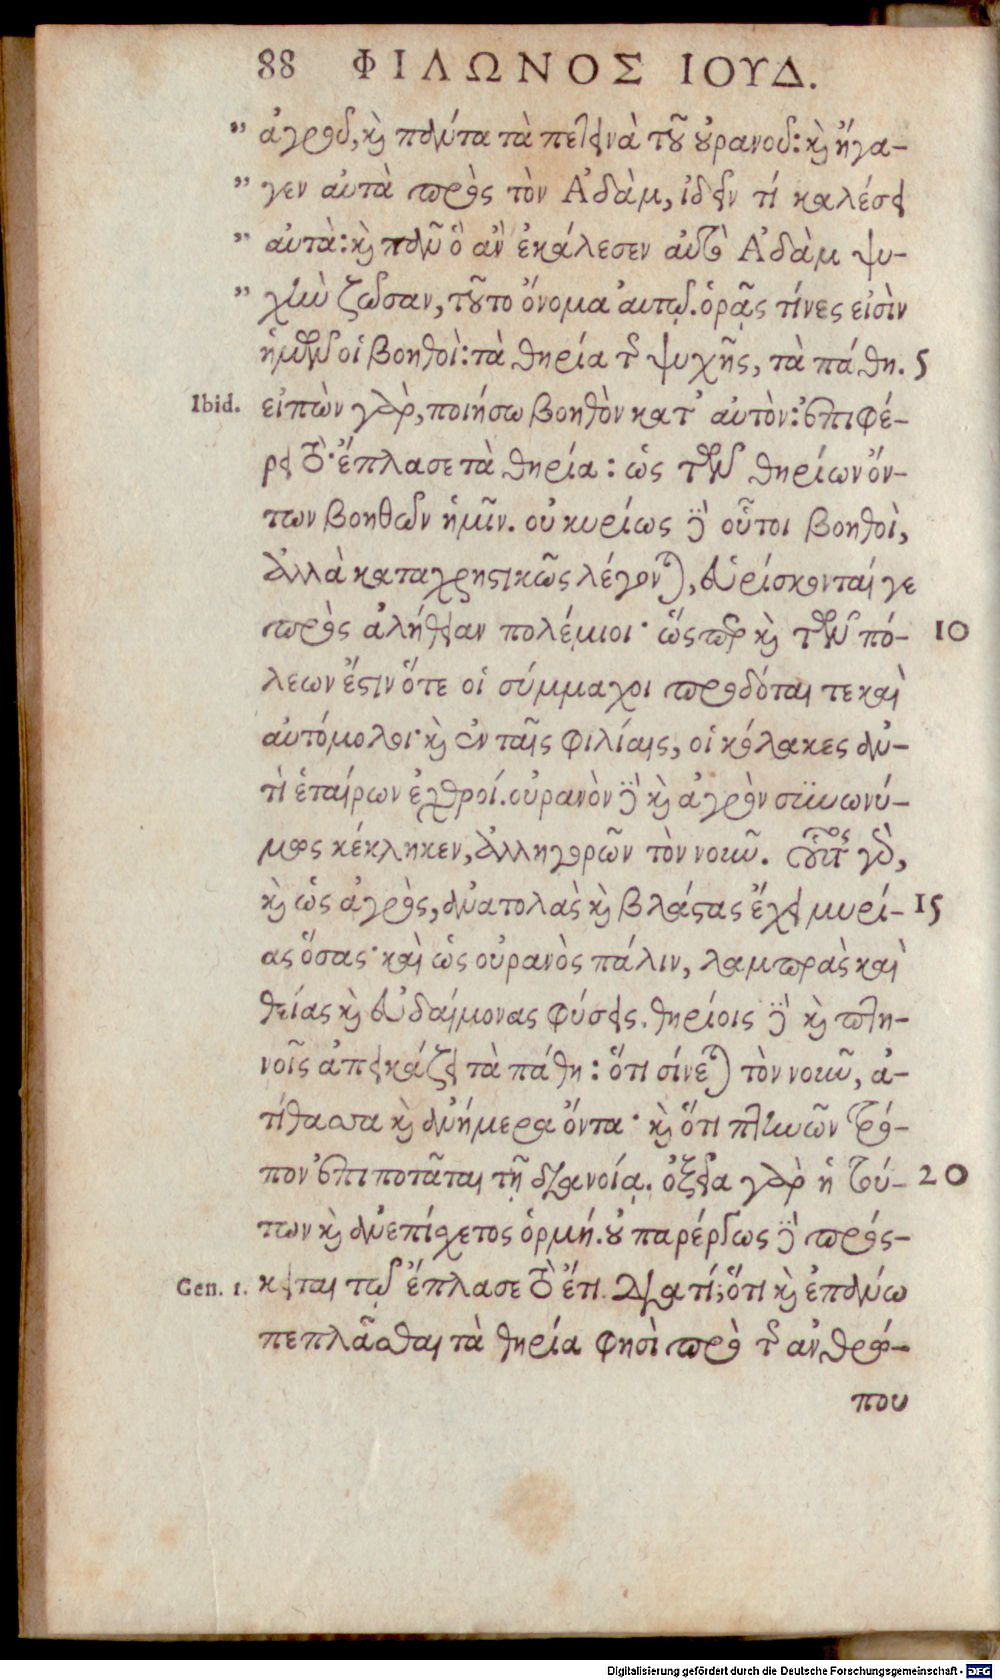 88 ΦΙΛΩΝΟΣ ΙΟΥΔ.
" ἀγροῦ, καὶ πάντα τὰ πετεινὰ τοῦ οὐρανοῦ: καὶ ἤγα-
" γεν αὐτὰ πρὸς τὸν Ἀδὰμ, ἰδεῖν τί καλέσει
" αὐτά: καὶ πᾶν ὃ ἂν ἐκάλεσεν αὐτὸ Ἀδὰμ ψυ-
" χὴν ζῶσαν, τοῦτο ὄνομα αὐτῷ. ὁρᾷς τίνες εἰσὶν
ἡμῶν οἱ βοηθοὶ: τὰ θηρία τῆς ψυχῆς, τὰ πάθη. 5
Ibid. εἰπὼν γὰρ, ποιήσω βοηθὸν κατ' αὐτὸν: ἐπιφέ-
ρει τὸ· ἔπλασε τὰ θηρία: ὡς τῶν θηρίων ὄν-
των βοηθῶν ἡμῖν. οὐ κυρίως δὲ οὗτοι βοηθοὶ,
ἀλλὰ καταχρηστικῶς λέγονται, εὑρίσκονταί γε
πρὸς ἀλήθειαν πολέμιοι· ὥσπερ καὶ τῶν πό- 10
λεων ἔστιν ὅτε οἱ σύμμαχοι προδόται τε καὶ
αὐτόμολοι· καὶ ἐν ταῖς φιλίαις, οἱ κόλακες ἀν-
τὶ ἑταίρων ἐχθροί. οὐρανὸν δὲ καὶ ἀγρὸν συνωνύ-
μως κέκληκεν, ἀλληγορῶν τὸν νοῦν. οὗτος γὰρ,
καὶ ὡς ἀγρὸς, ἀνατολὰς καὶ βλάστας ἔχει μυρί- 15
ας ὅσας· καὶ ὡς οὐρανὸς πάλιν, λαμπρὰς καὶ
θείας καὶ εὐδαίμονας φύσεις. θηρίοις δὲ καὶ πτη-
νοῖς ἀπεικάζει τὰ πάθη: ὅτι σίνεται τὸν νοῦν, ἀ-
τίθασσα καὶ ἀνήμερα ὄντα· καὶ ὅτι πτηνῶν τρό-
πον ἐπιποτᾶται τῇ διανοίᾳ. ὀξεῖα γὰρ ἡ τού- 20
των καὶ ἀνεπίσχετος ὁρμή. οὐ παρέργως δὲ πρόσ-
Gen. 1. κειται τῷ ἔπλασε τὸ ἔτι. διὰ τί; ὅτι καὶ ἐπάνω
πεπλάσθαι τὰ θηρία φησὶ πρὸ τοῦ ἀνθρώ-
που
Digitalisierung gefördert durch die Deutsche Forschungsgemeinschaft - DFG